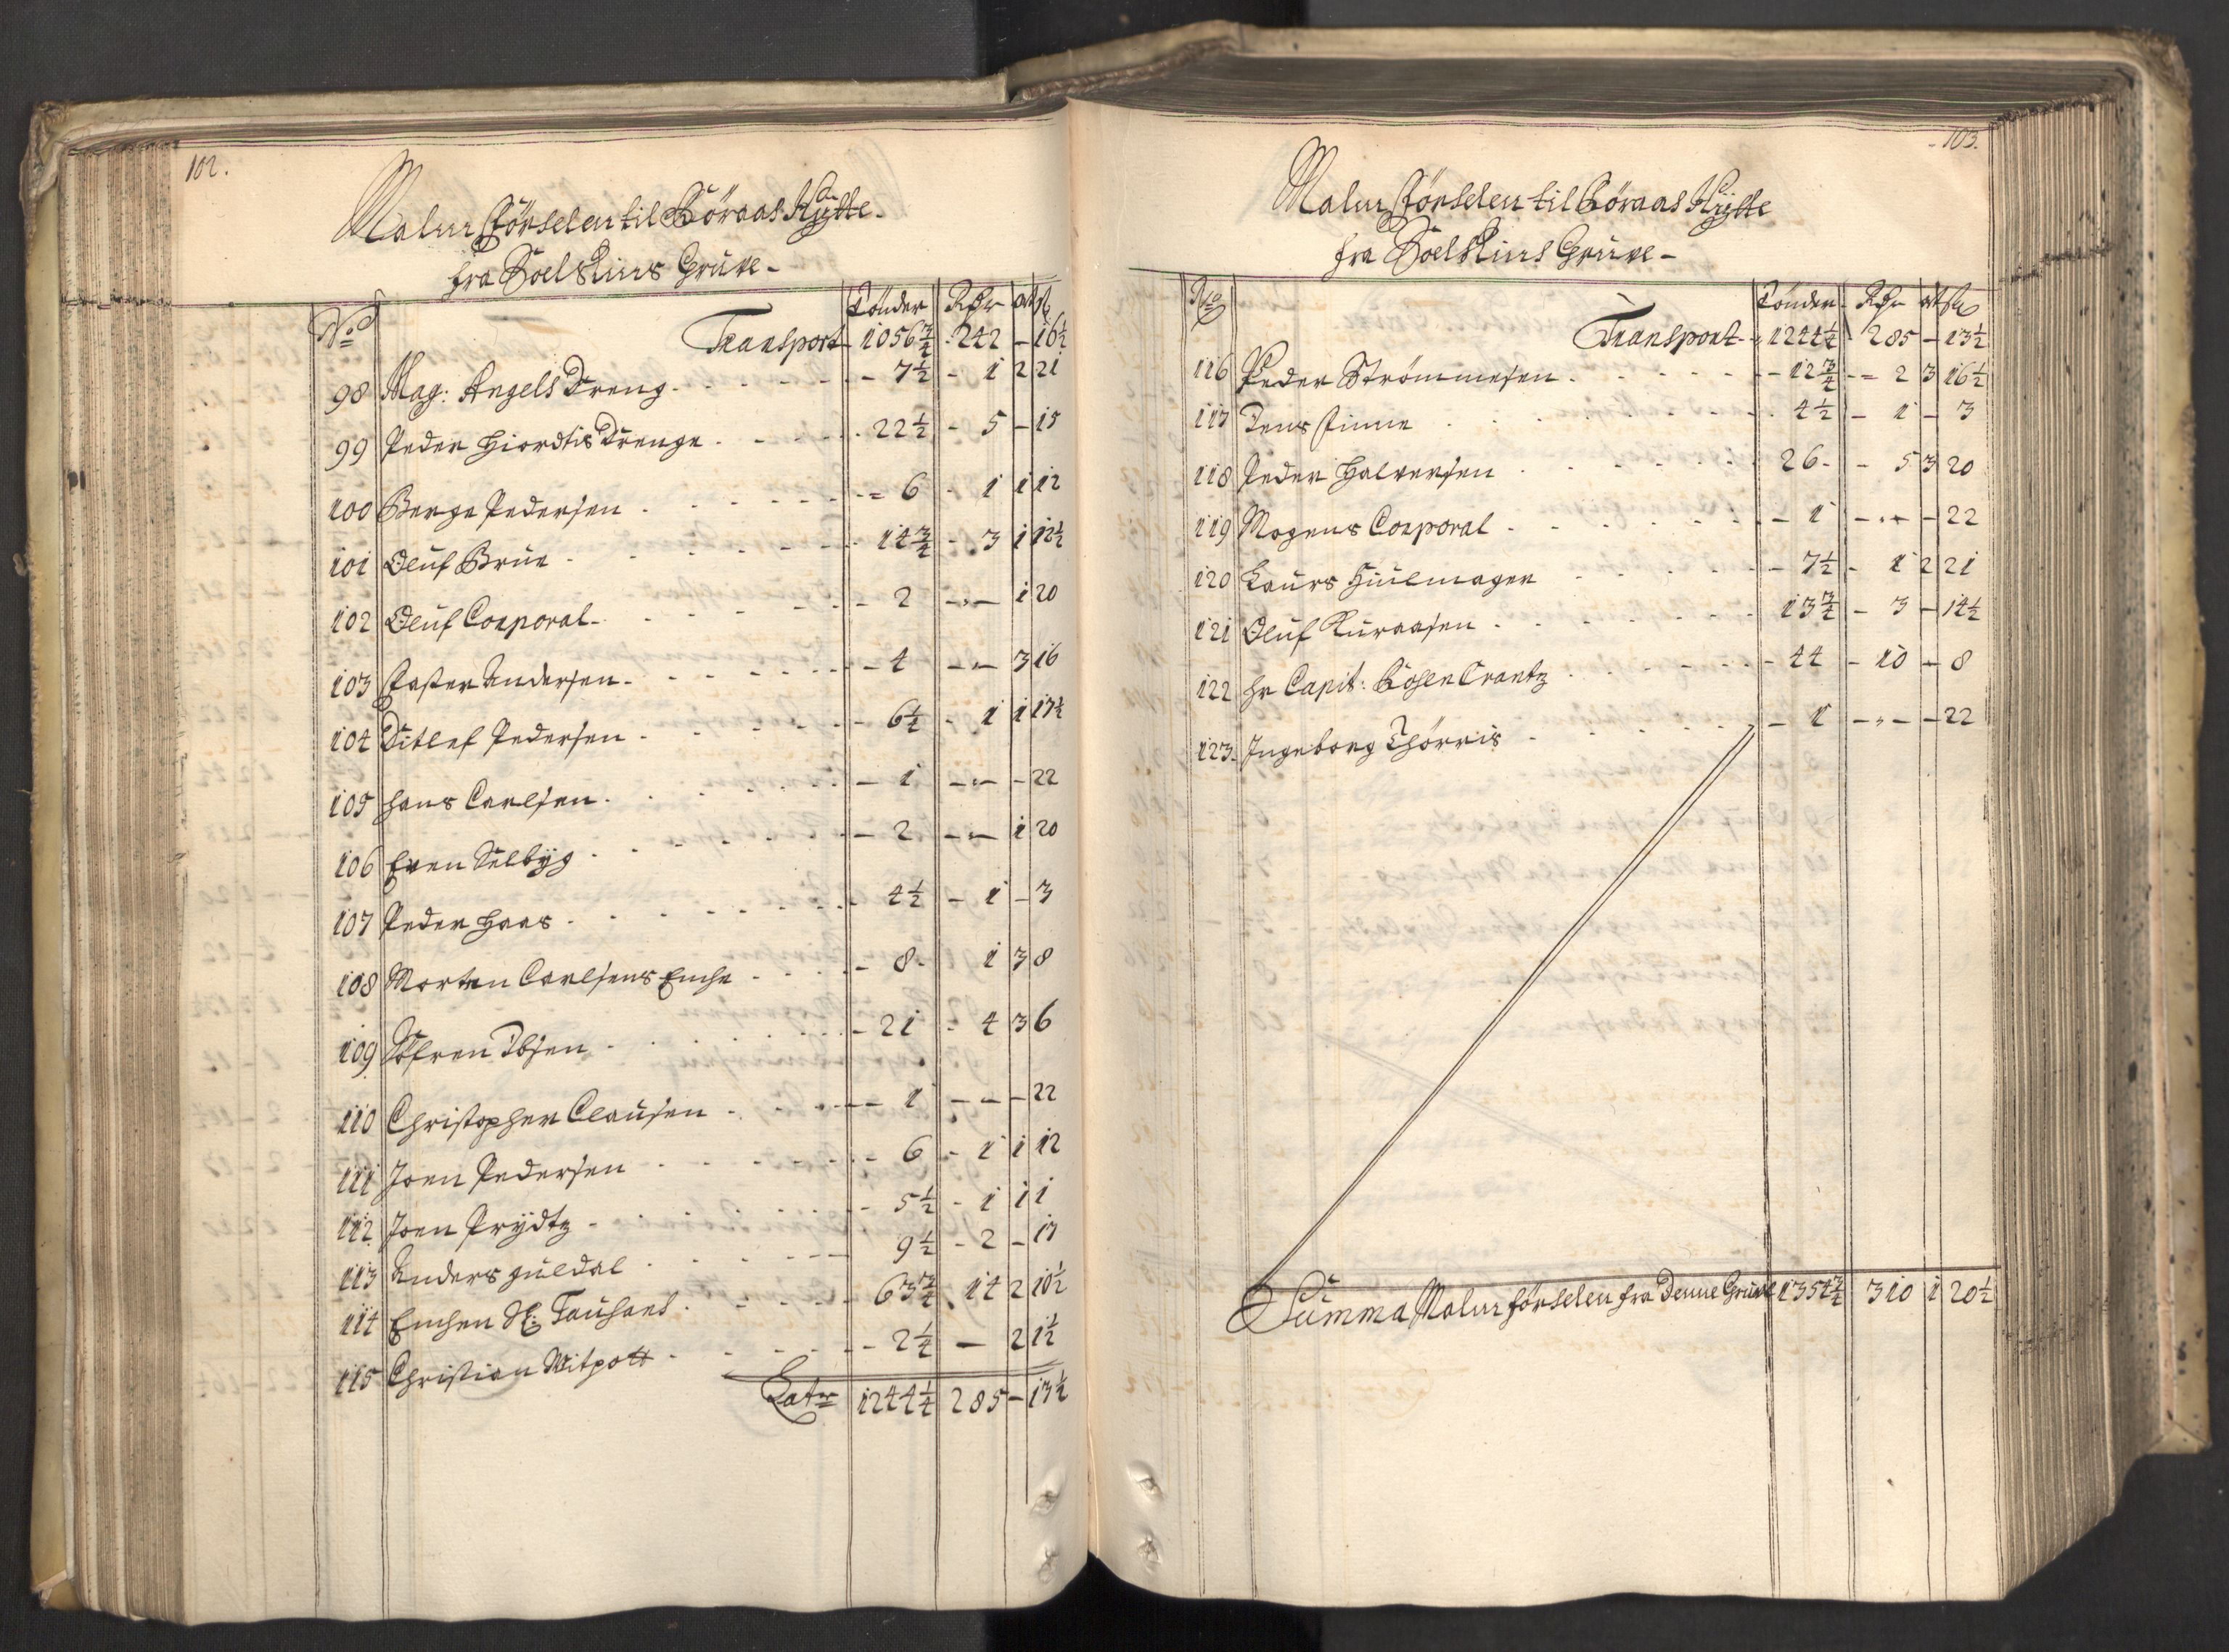 102.
Malm Förselen til Röraas Hÿtte.
fra Soelskins Grúve -
No Tönder Rdr ort s
Transport - 1056 3/4 - 242 - 16 1/2
98 Mag: Angels Dreng - 7 1/2 - 1 2 21
99 Peder Hiordtis Drenge 22 1/2 - 5 - 15
100 Berge Pedersen 6 - 1 1 12
101 Oluf Brun 14 3/4 - 3 1 12 1/2
102 Oluf Corporal - 2 - 1 20
103 Faster Andersen - 4 - 3 16
104 Ditlef Pedersen - 6 1/4 - 1 1 17 1/2
105 Hans Carlsen - 1 - - 22
106 Even Selbÿg - 2 - 1 20
107 Peder Haas 4 1/2 - 1 - 3
108 Morten Carlsens Enche - 8 - 1 3 8
109 Söfren Ibsen - 21 - 4 3 6
110 Christopher Clausen - 1 - - 22
111 Joen Pedersen - 6 - 1 1 12
112 Joen Prÿdtz - 5 1/2 - 1 1 1
113 Anders Guldal 9 1/2 - 2 - 17
114 Enchen Sl: Tausans 63 3/4 14 2 10 1/2
115 Christian Mitpott - 2 1/4 - 2 1 1/2
Latr 1244 1/4 285 - 13 1/2
103.
Malm Förselen til Röraas Hÿtte
fra Soelskins Grúve -
No Tönder Rdr ort s
Transport - 1244 1/4 285 - 13 1/2
116 Peder Strömmesen - 12 3/4 - 2 3 16 1/2
117 Jens Finne 4 1/2 - 1 - 3
118 Peder Halversen 26 - - 5 3 20
119 Mogens Corporal - 1 - - 22
120 Laurs Hiulmager - 7 1/2 - 1 2 21
121 Oluf Kuraasen 13 3/4 - 3 - 14 1/2
122 Hr Capit: Rosencrantz - 44 - 10 - 8
123. Ingeborg Thörris - 1 - - 22
Summa Malm förselen fra Denne Gruve 1354 3/4 310 1 20 1/2